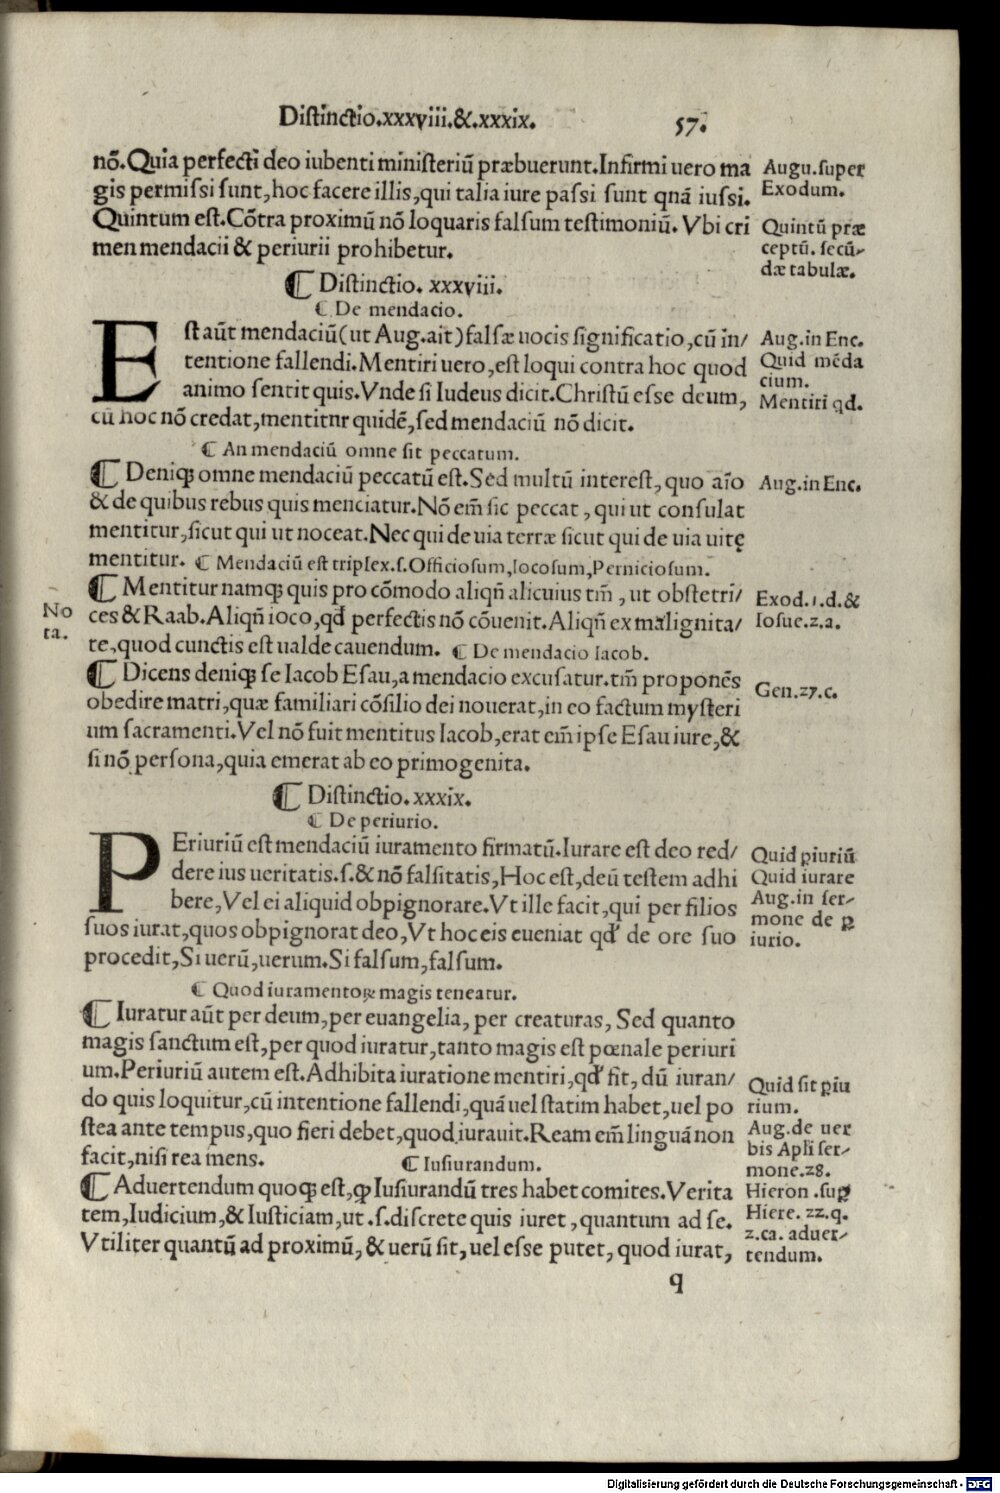 Distinctio.xxxviii.&.xxxix. 57.
nō.Quia perfecti deo iubenti ministeriū præbuerunt.Infirmi uero ma
gis permissi sunt,hoc facere illis,qui talia iure passi sunt qnā iussi.
Quintum est.Cōtra proximū nō loquaris falsum testimoniū.Vbi cri
men mendacii & periurii prohibetur.
Augu.super
Exodum.
Quintū præ
ceptū. secū-
dæ tabulæ.
¶ Distinctio. xxxviii.
¶ De mendacio.
Est aūt mendaciū(ut Aug.ait)falsæ uocis significatio,cū in/
tentione fallendi.Mentiri uero,est loqui contra hoc quod
animo sentit quis.Vnde si Iudeus dicit.Christū esse deum,
cū hoc nō credat,mentitnr quidē,sed mendaciū nō dicit.
Aug.in Enc.
Quid mēda
cium.
Mentiri qd.
¶ An mendaciū omne sit peccatum.
¶ Deniqꝫ omne mendaciū peccatū est.Sed multū interest,quo aīo
& de quibus rebus quis menciatur.Nō em̄ sic peccat,qui ut consulat
mentitur,sicut qui ut noceat.Nec qui de uia terræ sicut qui de uia uitę
mentitur. ¶ Mendaciū est triplex.s.Officiosum,Iocosum,Perniciosum.
Aug.in Enc.
¶ Mentitur namqꝫ quis pro cōmodo aliqñ alicuius tm̄, ut obstetri/
ces & Raab.Aliqñ ioco,qd perfectis nō cōuenit.Aliqñ ex malignita/
te,quod cunctis est ualde cauendum. ¶ De mendacio Iacob.
No
ta.
Exod.1.d.&
Iosue.2.a.
¶ Dicens deniqꝫ se Iacob Esau,a mendacio excusatur.tm̄ proponēs
obedire matri,quæ familiari cōsilio dei nouerat,in eo factum mysteri
um sacramenti.Vel nō fuit mentitus Iacob,erat em̄ ipse Esau iure,&
si nō persona,quia emerat ab eo primogenita.
Gen.27.c.
¶ Distinctio.xxxix.
¶ De periurio.
PEriuriū est mendaciū iuramento firmatū.Iurare est deo red/
dere ius ueritatis.s.& nō falsitatis,Hoc est,deū testem adhi
bere,Vel ei aliquid obpignorare.Vt ille facit,qui per filios
suos iurat,quos obpignorat deo,Vt hoc eis eueniat qd' de ore suo
procedit,Si uerū,uerum.Si falsum,falsum.
Quid ꝑiuriū
Quid iurare
Aug.in ser-
mone de ꝑ
iurio.
¶ Quod iuramentoꝝ magis teneatur.
¶ Iuratur aūt per deum,per euangelia, per creaturas, Sed quanto
magis sanctum est,per quod iuratur,tanto magis est pœnale periuri
um.Periuriū autem est.Adhibita iuratione mentiri,qd' fit, dū iuran/
do quis loquitur,cū intentione fallendi,quā uel statim habet,uel po
stea ante tempus,quo fieri debet,quod iurauit.Ream em̄ linguā non
facit,nisi rea mens. ¶ Iusiurandum.
Quid sit ꝑiu
rium.
Aug.de uer
bis Apli ser-
mone.28.
¶ Aduertendum quoqꝫ est, ꝙ Iusiurandū tres habet comites.Verita
tem,Iudicium,& Iusticiam,ut .s.discrete quis iuret,quantum ad se.
Vtiliter quantū ad proximū,& uerū sit,uel esse putet, quod iurat,
Hieron .suꝑ
Hiere. 22.q.
2.ca. aduer-
tendum.
q
Digitalisierung gefördert durch die Deutsche Forschungsgemeinschaft - DFG